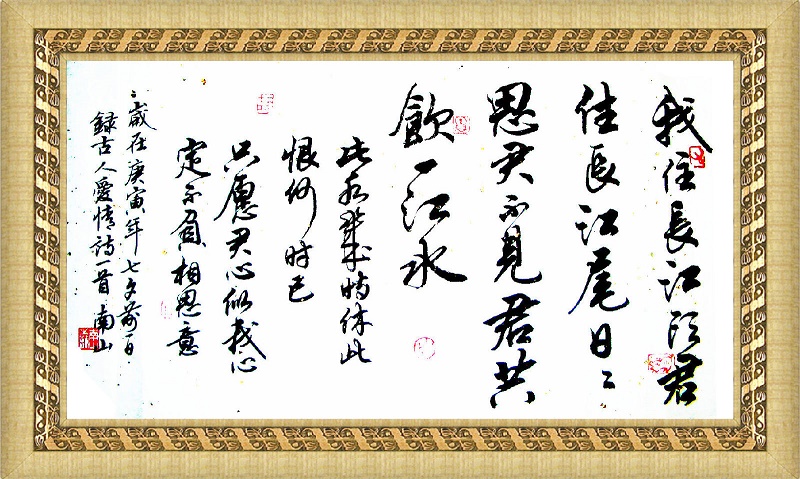 我住長江頭君
住長江尾日〻
思君不見君共
飲一江水
此水幾時休此
恨何時已
只愿君心似我心
定不負相思意
歲在庚寅年七夕前一日
録古人愛情詩一首 南山